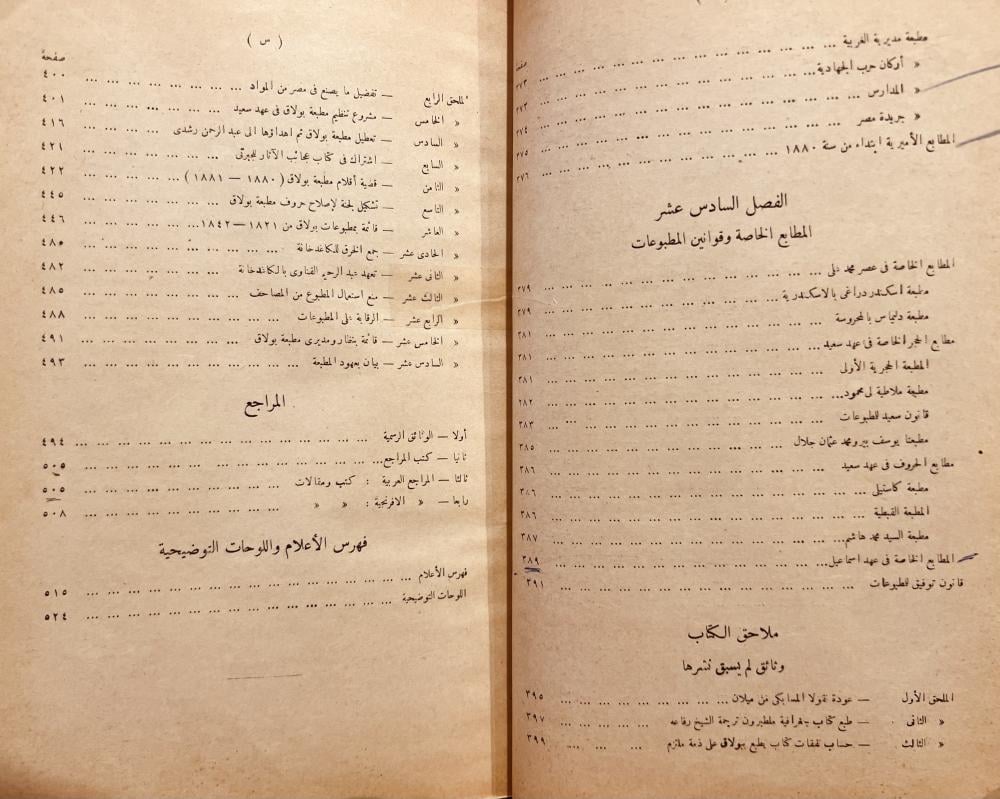 صفحة
مطبعة مديرية الغربية ... ٣٧٣
« أركان حرب الجهادية ... ٣٧٣
« المدارس ... ٣٧٤
« جريدة مصر ... ٣٧٥
المطابع الأميرية ابتداء من سنة ١٨٨٠ ... ٣٧٦
الفصل السادس عشر
المطابع الخاصة وقوانين المطبوعات
المطابع الخاصة فى عصر محمد على ... ٣٧٩
مطبعة اسكندر دراغى بالاسكندرية ... ٣٧٩
مطبعة دليماس بالمحروسة ... ٣٨١
مطابع الحجر الخاصة فى عهد سعيد ... ٣٨١
المطبعة الحجرية الأولى ... ٣٨١
مطبعة ملاطية لى محمود ... ٣٨٢
قانون سعيد للطبوعات ... ٣٨٣
مطبعتا يوسف بير ومحمد عثمان جلال ... ٣٨٥
مطابع الحروف فى عهد سعيد ... ٣٨٦
مطبعة كاستيلى ... ٣٨٦
المطبعة القبطية ... ٣٨٦
مطبعة السيد محمد هاشم ... ٣٨٧
المطابع الخاصة فى عهد اسماعيل ... ٣٨٩
قانون توفيق للطبوعات ... ٣٩١
ملاحق الكتاب
وثائق لم يسبق نشرها
الملحق الأول — عودة نقولا المسابكى من ميلان ... ٣٩٥
« الثانى — طبع كتاب جغرافية ملطبرون ترجمة الشيخ رفاعه ... ٣٩٧
« الثالث — حساب نفقات كتاب يطبع ببولاق على ذمة ملتزم ... ٣٩٩
( س )
صفحة
الملحق الرابع — تفضيل ما يصنع فى مصر من المواد ... ٤٠٠
« الخامس — مشروع تنظيم مطبعة بولاق فى عهد سعيد ... ٤٠١
« السادس — تعطيل مطبعة بولاق ثم اهداؤها الى عبد الرحمن رشدى ... ٤١٦
« السابع — اشتراك فى كتاب عجائب الآثار للجبرتى ... ٤٢١
« الثامن — قضية أقلام مطبعة بولاق ( ١٨٨٠ — ١٨٨١ ) ... ٤٢٢
« التاسع — تشكيل لجنة لإصلاح حروف مطبعة بولاق ... ٤٤٥
« العاشر — قائمة بمطبوعات بولاق من ١٨٢١ — ١٨٤٢ ... ٤٤٦
« الحادى عشر — جمع الخرق للكاغدخانة ... ٤٨٠
« الثانى عشر — تعهد عبد الرحيم القناوى بالكاغدخانة ... ٤٨٢
« الثالث عشر — منع استعمال المطبوع من المصاحف ... ٤٨٥
« الرابع عشر — الرقابة على المطبوعات ... ٤٨٨
« الخامس عشر — قائمة بنظار ومديرى مطبعة بولاق ... ٤٩١
« السادس عشر — بيان بعهود المطبعة ... ٤٩٣
المراجع
أولا — الوثائق الرسمية ... ٤٩٤
ثانيا — كتب المراجع ... ٥٠٥
ثالثا — المراجع العربية : كتب ومقالات ... ٥٠٥
رابعا — « الافرنجية : « « ... ٥٠٨
فهرس الأعلام واللوحات التوضيحية
فهرس الأعلام ... ٥١٥
اللوحات التوضيحية ... ٥٢٤